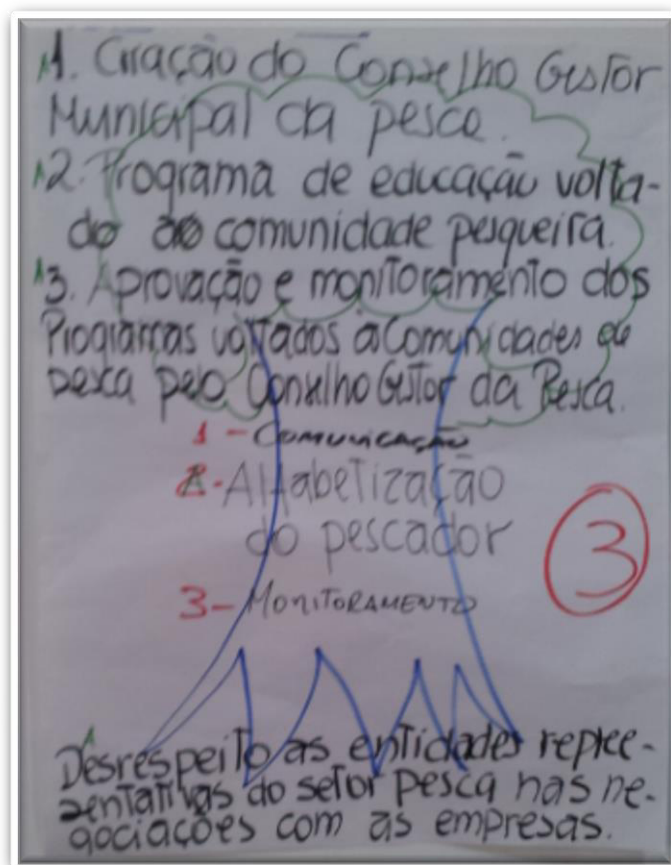 1. Criação do Conselho Gestor
Municipal da pesca.
2. Programa de educação volta-
do ao comunidade pesqueira.
3. Aprovação e monitoramento dos
Programas voltados a Comunidades de
pesca pelo Conselho Gestor da Pesca.
1 - Comunicação
2 - Alfabetização
do pescador
3 - MONITORAMENTO
3
Desrespeito as entidades repree-
sentativas do setor pesca nas ne-
gociações com as empresas.